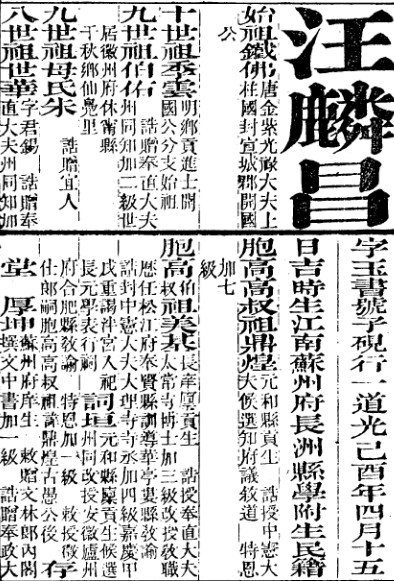 汪麟昌
字玉書號子硯行一道光己酉年四月十五
日吉時生江南蘇州府長洲縣學附生民籍
始祖鐵佛 唐金紫光祿大夫上
柱國封宣城郡開國
公
十世祖季雲 明鄉貢進士開
國公分支始祖
九世祖伯佑 誥贈奉直大夫
州同知加二級世
居徽州府休甯縣
千秋鄉仙巖里
九世祖母氏朱 誥贈宜人
八世祖世華 字君錫 誥贈奉
直大夫州同知加
胞高高叔祖鼎煌 元和縣貢生 誥授中憲大
夫候選知府議敘道 特恩
加七
級
胞高伯叔祖美基 長庠廩貢生 誥授奉直大夫
太常寺博士加三級改授教職
歷任松江府奉賢縣訓導華亭婁縣教諭
誥封中憲大夫大理寺寺丞加四級嘉慶甲
戌重游泮宮入祀
長元學表行祠 詞垣 元和縣廩貢生候選
州同改授安徽廬州
府合肥縣教諭 特恩加一級 敕授徵
仕郎嗣胞高高叔祖諱鼎煌古愚公後 存
堂 厚坤 蘇州府庠生 敕贈文林郎內閣
撰文中書加一級 誥贈奉政大